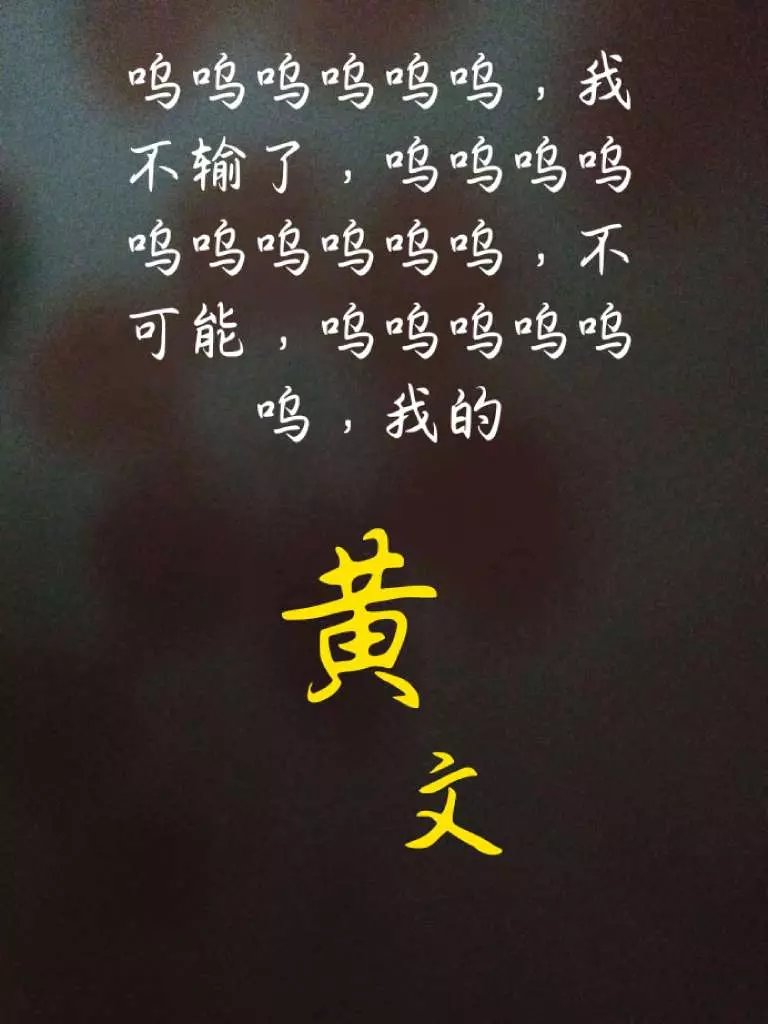 呜呜呜呜呜呜，我
不输了，呜呜呜呜
呜呜呜呜呜呜，不
可能，呜呜呜呜呜
呜，我的
黄
文